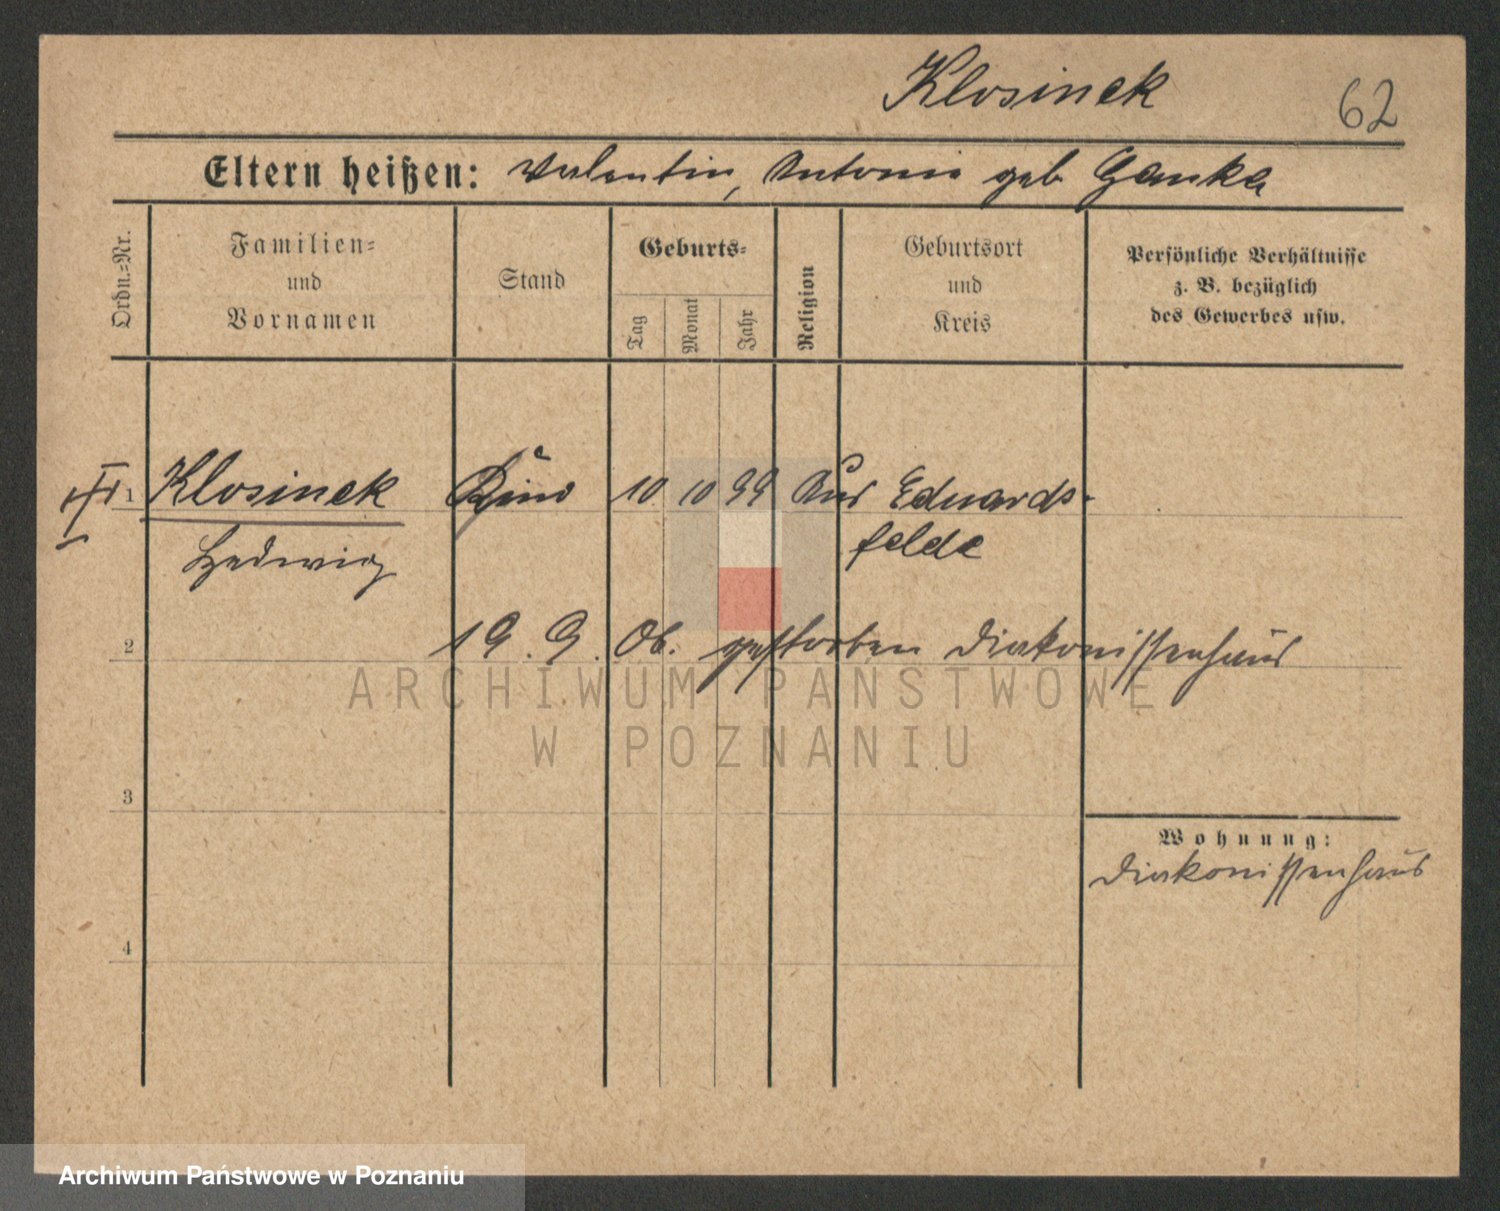 Klosinek 62
Eltern heißen: Valentin, Antonie geb Ganka
Ordn.=Nr.
Familien=
und
Vornamen
Stand
Geburts=
Tag
Monat
Jahr
Religion
Geburtsort
und
Kreis
Persönliche Verhältnisse
z. B. bezüglich
des Gewerbes usw.
1 Klosinek Kind 10 10 99 Eduards-
Hedwig felde
2 19. 9. 06. gestorben Diakonissenhaus
3
4
Wohnung:
Diakonissenhaus
ARCHIWUM PAŃSTWOWE
W POZNANIU
Archiwum Państwowe w Poznaniu